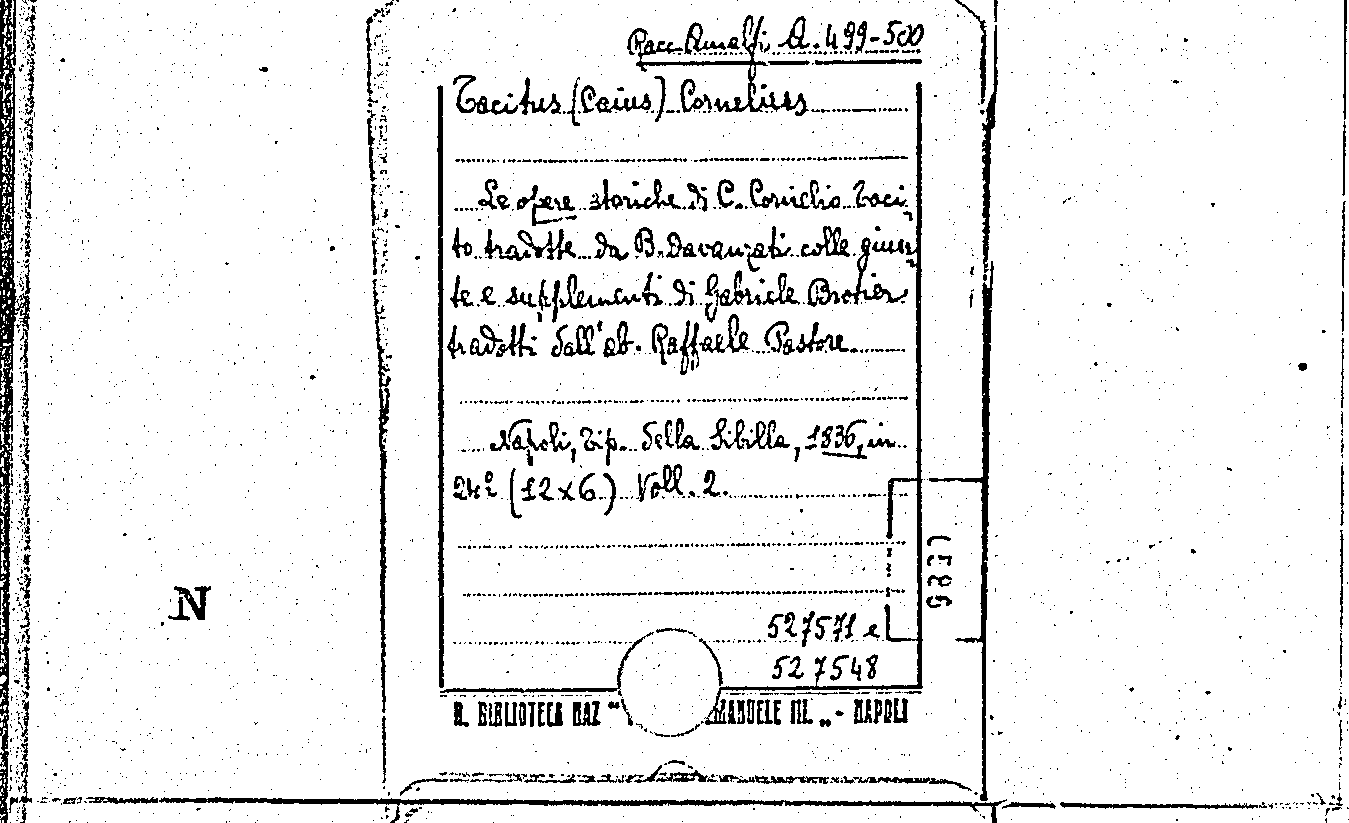 Racc. Amalfi A. 499-500
Tacitus (Caius) Cornelius
Le opere storiche di C. Cornelio Taci-
to tradotte da B. Davanzati colle giun-
te e supplementi di Gabriele Brotier
tradotti dall'ab. Raffaele Pastore.
Napoli, Tip. della Sibilla, 1836, in
24º (12x6) Voll. 2.
N
527571 e
527548
R. BIBLIOTECA NAZ " MANUELE III. „ - NAPOLI